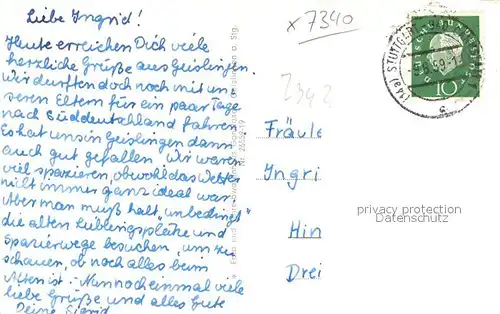 Liebe Ingrid!
Heute erreichen Dich viele
herzliche Grüße aus Geislingen.
Wir durften doch noch mit un-
seren Eltern für ein paar Tage
nach Süddeutschland fahren.
Es hat uns in Geislingen dann
auch gut gefallen. Wir waren
viel spazieren, obwohl das Wetter
nicht immer ganz ideal war.
Aber man muß halt "unbedingt"
die alten Lieblingsplätze und
Spazierwege besuchen, um zu
schauen, ob noch alles beim
Alten ist. Nun noch einmal viele
liebe Grüße und alles Gute
Deine Sigrid
x 7340
STUTTGART
DEUTSCHE BUNDESPOST
10
Fräule
Yngri
Hin
Drei
privacy protection
Datenschutz